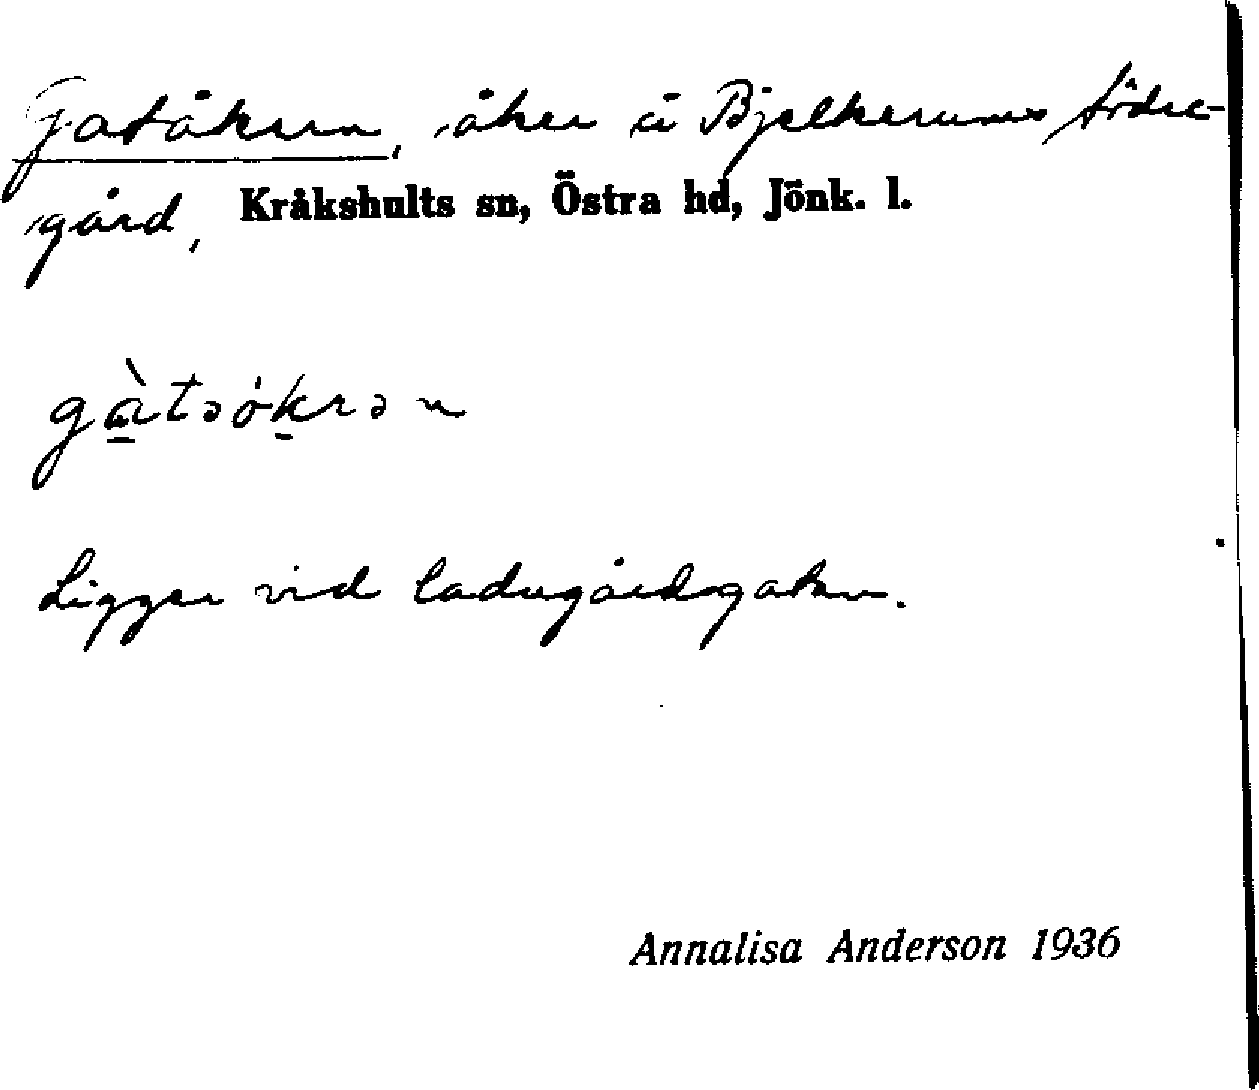 Gatåkern, åker å Bjelkerums södre-
gård, Kråkshults sn, Östra hd, Jönk. l.
gàtəókrən
Ligger vid ladugårdsgatan.
Annalisa Anderson 1936